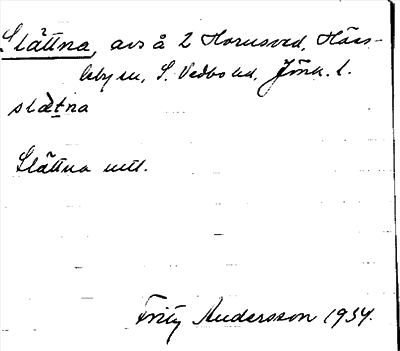 Slättna, avs å 2 Hornsved, Häss-
leby sn, S. Vedbo hd, Jönk. l.
slætna
Slättna utt.
Fritz Andersson 1934.